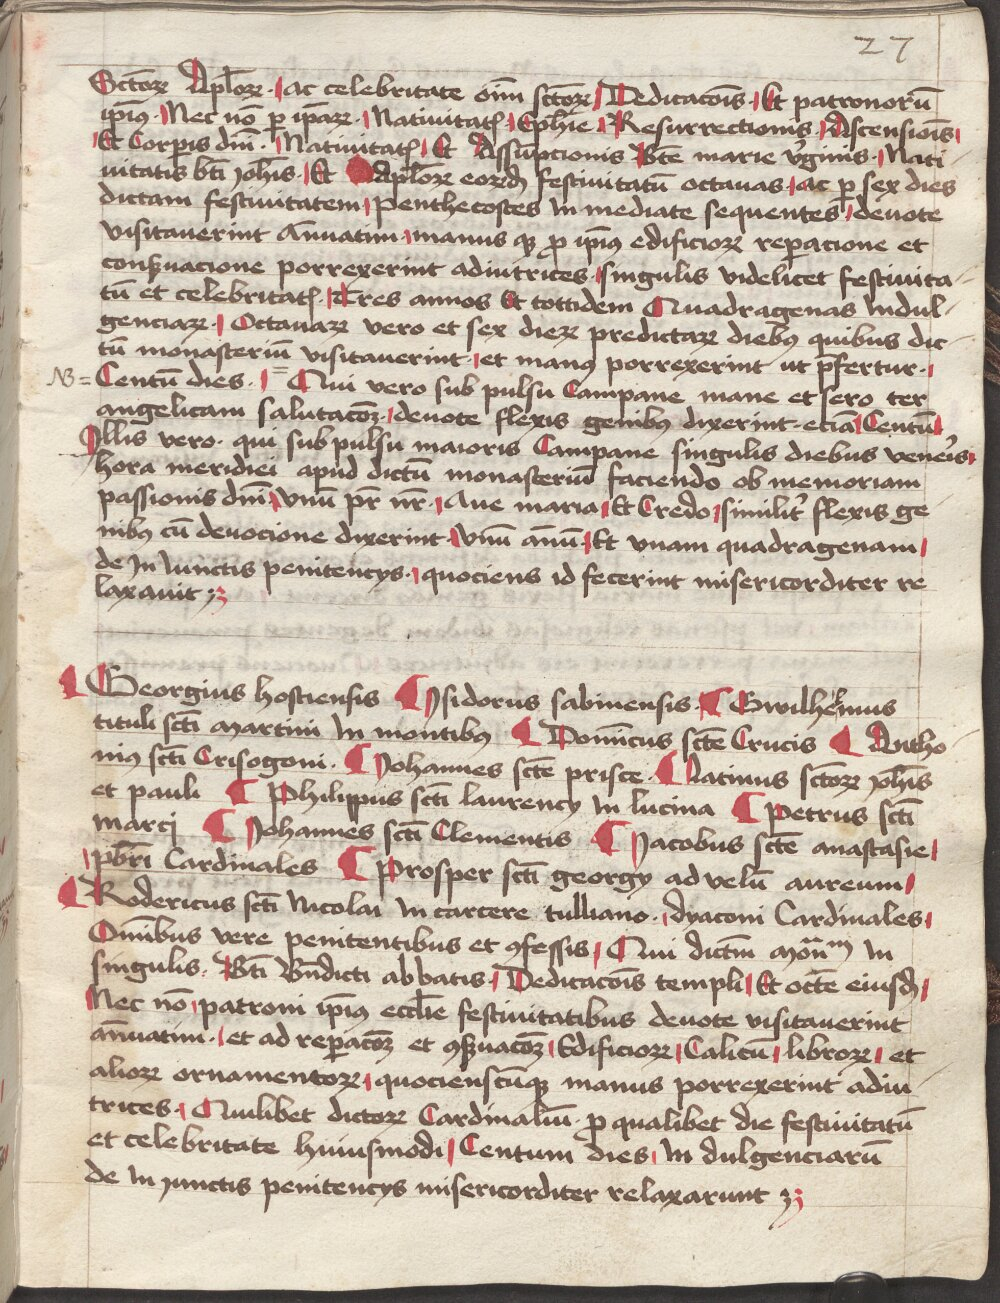 27
Sctõꝝ Apl̃oꝝ · ac celebritate oĩm sctõꝝ Dedicacõis Et patronorũ
ipĩus · Nec nõ ꝑ ip̃aꝝ · Natiuitatꝭ · Ephĩe · Resurrectionis Ascensiõis
Et Corꝑis dñi · Natiuitatꝭ Et Assũpcionis Bt̃e marie v̓ginis · Nati
uitatis bt̃i Joh̃is · Et Apl̃oꝝ eoꝝd̃ festiuitatũ octauas ac ꝑ sex dies
dictam festiuitatem Penthecostes In mediate sequentes deuote
visitauerint Annuatim manus qꝫ ꝓ ipĩus edificioꝝ reꝑacione et
conßuacione porrexerint adiutrices singulis videlicet festiuita-
tũ et celebritatꝭ · Tres annos Et tottidem Quadragenas Indul-
genciaꝝ · Octauaꝝ vero et sex dieꝝ predictaꝝ diebꝰ quibus dic-
tũ monasteriũ visitauerint · et manꝰ porrexerint ut p̃fertur ·
NB = Centũ dies · = Qui vero sub pulsu Campane mane et sero ter
angelicam salutacõꝫ · deuote flexis genibꝰ dixerint · eciã Centũ
Illis vero · qui sub pulsu maioris Campane singulis diebus veneris
hora meridiei apud dictũ monasteriũ faciendo ob memoriam
passionis dñi Vnũ pr̃ nr̃ · Aue maria Et Credo similit̓ flexis ge
nibꝰ cũ deuocione dixerint · Vnũ ãnũ · Et vnam quadragenam
de In Iunctis penitencijs · quociens id fecerint misericorditer re
laxauit ;
Georgius hostiensis Ysidorus sabinensis · Gwilhelmus
tituli sct̃i Martini In montibꝰ Domĩcus sct̃e Crucis Antho
nius sct̃i Crisogoni · Johannes sct̃e prisce · Latinus sctõꝝ Joh̃is
et pauli Philippus sct̃i laurencij In lucina Petrus sct̃i
marcj Johannes sct̃i Clementis Jacobus sct̃e anastasie
pb̃ri Cardinales Prosper sct̃i georgij ad velũ aureum
Rodericus sct̃i Nicolai In carcere tulliano · dyaconi Cardinales
Oñibus vere penitentibus et ꝯfessis Qui dictm̃ Moñ In
singulis · Bt̃i Bñdicti abbatis Dedicacõis templi Et oct̃e eiusd̃
Nec nõ patroni ipĩus eccl̃ie festiuitatibus deuote visitauerint
añuatim · et ad reꝑacõꝫ et ꝯßuacõꝫ Edificioꝝ Calicũ libroꝝ et
alioꝝ ornamentoꝝ quocienscũqꝫ manus porrexerint adiu
trices · Quilibet dictoꝝ Cardinaliũ ꝓ qualibet die festiuitatũ
et celebritate huiusmodi Centum dies In dulgenciarũ
de In iunctis penitencijs misericorditer relaxarunt ;